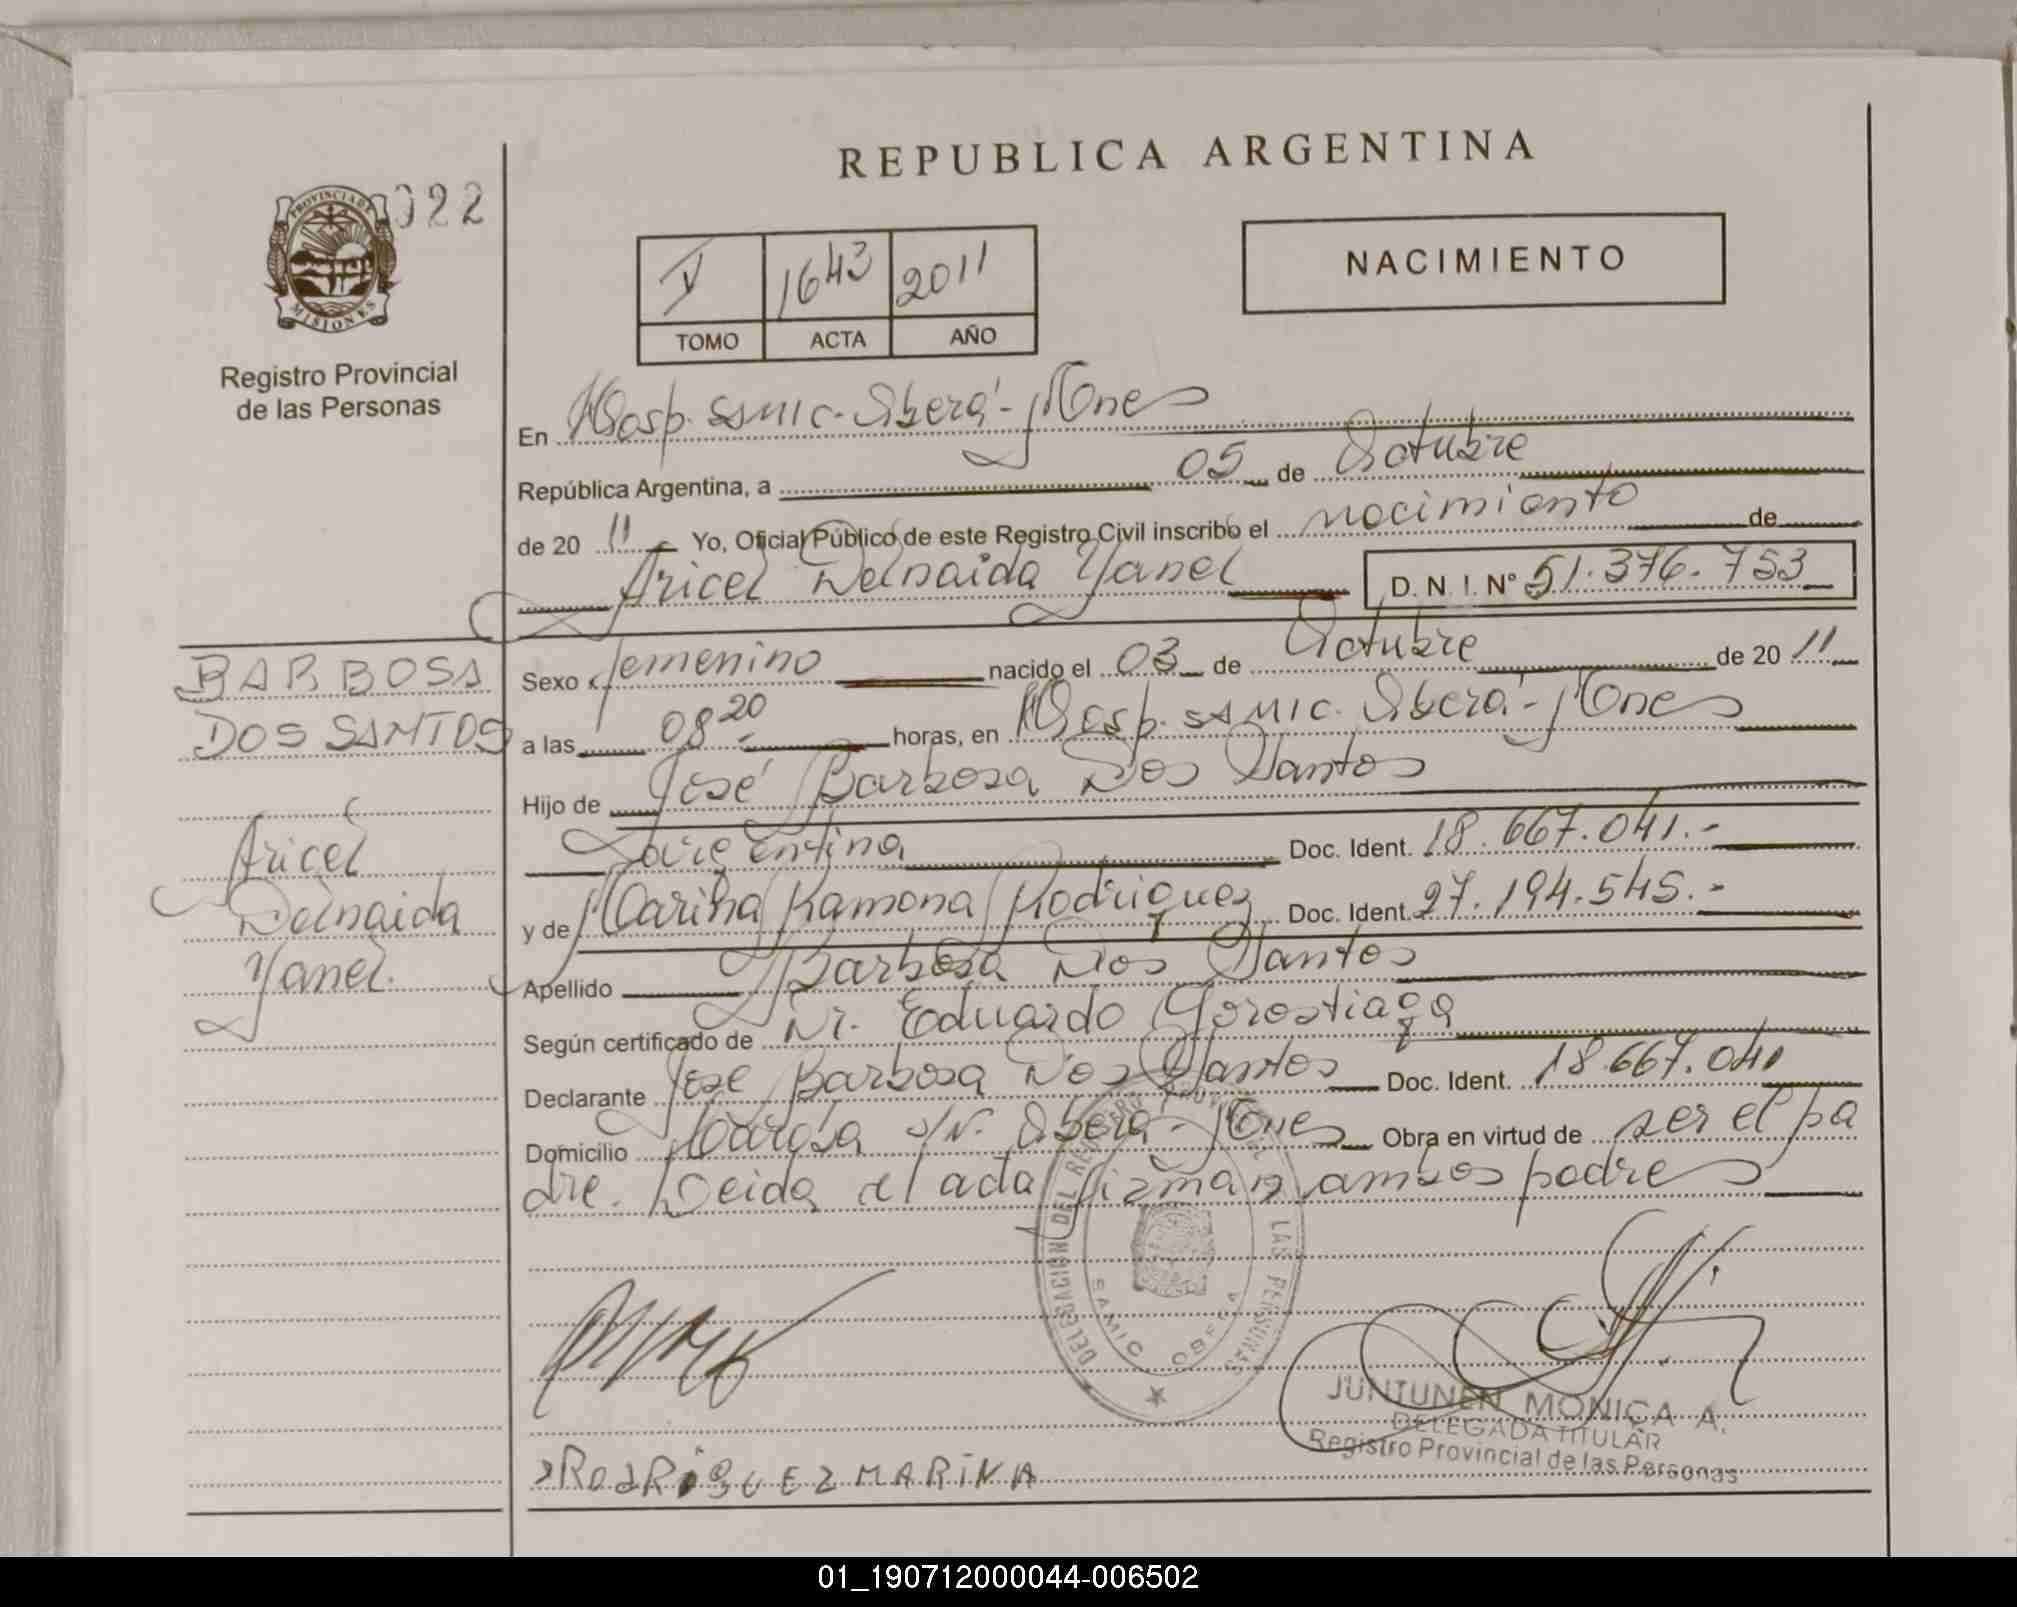 REPUBLICA ARGENTINA
022
PROVINCIA DE
MISIONES
Registro Provincial
de las Personas
V 1643 2011
TOMO ACTA AÑO
NACIMIENTO
En Hosp. SAMIC - Oberá - Mnes
República Argentina, a 05 de Octubre
de 20 11 Yo, Oficial Público de este Registro Civil inscribo el nacimiento de
Aricel Delnaida Yanel D. N. I. Nº 51.376.753
BARBOSA
DOS SANTOS
Aricel
Delnaida
Yanel.
Sexo femenino nacido el 03 de Octubre de 20 11
a las 08 20 horas, en Hosp. SAMIC. Oberá - Mnes
Hijo de José Barbosa Dos Santos
argentina Doc. Ident. 18.667.041.-
y de Marina Ramona Rodriguez Doc. Ident. 27.194.545.-
Apellido Barbosa Dos Santos
Según certificado de Dr. Eduardo Gorostiaga
Declarante José Barbosa Dos Santos Doc. Ident. 18.667.041
Domicilio s/N. Oberá - Mnes Obra en virtud de ser el pa
dre. Leida el acta firman ambos padres
DELEGACION DEL REGISTRO PROVINCIAL DE LAS PERSONAS
SAMIC OBERA
RodRiGUEZ MARiNA
JUNTUNEN MONICA A.
DELEGADA TITULAR
Registro Provincial de las Personas
01_190712000044-006502